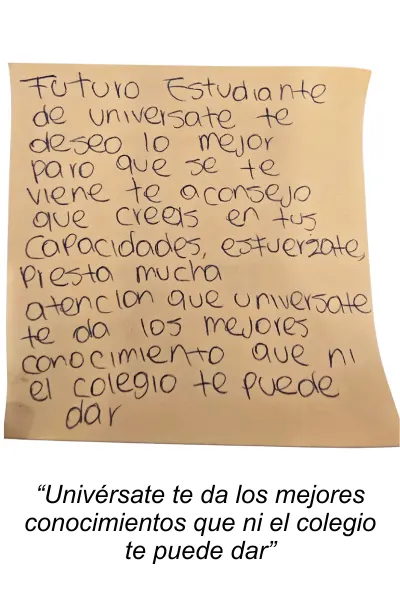 Futuro Estudiante
de universate te
deseo lo mejor
paro que se te
viene te aconsejo
que creeis en tus
capacidades, esfuerzate,
presta mucha
atencion que universate
te da los mejores
conocimiento que ni
el colegio te puede
dar
“Univérsate te da los mejores
conocimientos que ni el colegio
te puede dar”